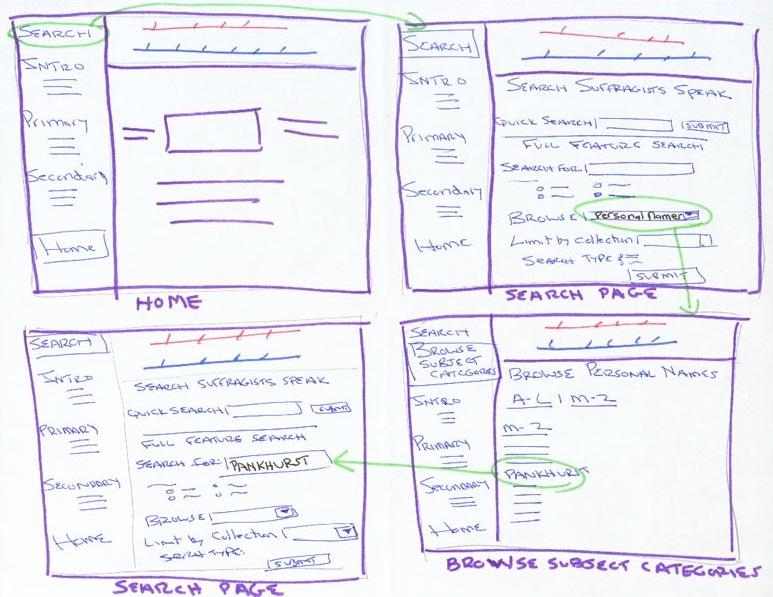 SEARCH
INTRO
Primary
Secondary
Home
HOME
SEARCH
INTRO
Primary
Secondary
Home
SEARCH SUFFRAGISTS SPEAK
QUICK SEARCH SUBMIT
FULL FEATURE SEARCH
SEARCH FOR:
BROWSE Personal Names
Limit by Collection
SEARCH TYPE
SUBMIT
SEARCH PAGE
SEARCH
INTRO
PRIMARY
SECONDARY
HOME
SEARCH SUFFRAGISTS SPEAK
QUICK SEARCH SUBMIT
FULL FEATURE SEARCH
SEARCH FOR: PANKHURST
BROWSE
Limit by Collection
SERCH TYPE:
SUBMIT
SEARCH PAGE
SEARCH
BROWSE
SUBJECT
CATEGORIES
INTRO
PRIMARY
SECONDARY
HOME
BROWSE PERSONAL NAMES
A-L | M-Z
M-Z
PANKHURST
BROWSE SUBJECT CATEGORIES